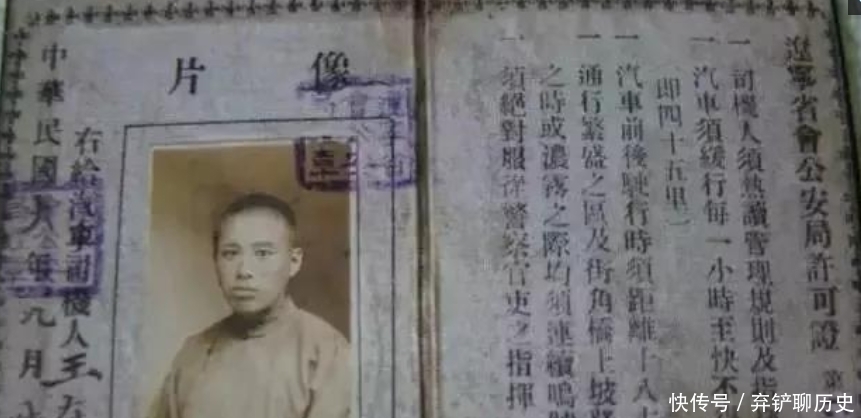 遼寧省會公安局許可證 第
一 司機人須熟讀管理規則及指
一 汽車須緩行每一小時至快不
即四十五里）
一 汽車前後駛行時須距離十八
一 通行繁盛之區及街角橋上坡
之時或濃霧之際均須連續鳴
一 須絕對服從警察官吏之指揮
像片
右給汽車司機人王
中華民國十八年九月
快传号／弃铲聊历史